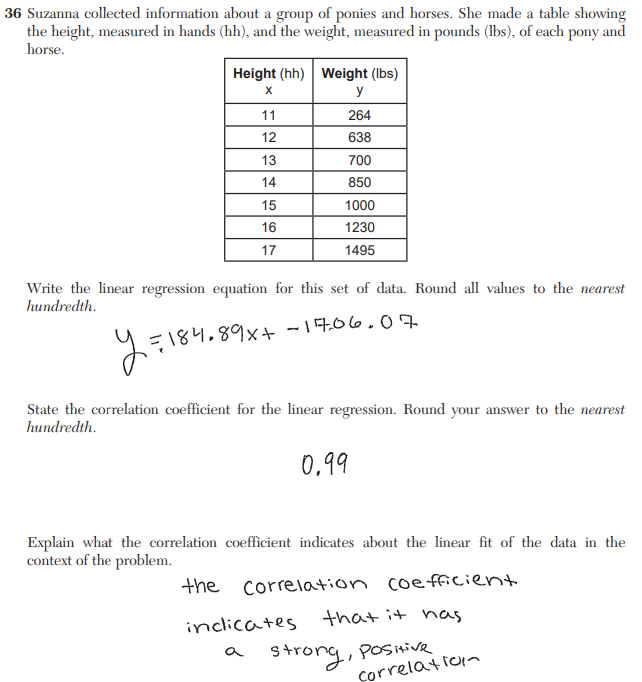 36 Suzanna collected information about a group of ponies and horses. She made a table showing
the height, measured in hands (hh), and the weight, measured in pounds (lbs), of each pony and
horse.
Height (hh) Weight (lbs)
x y
11 264
12 638
13 700
14 850
15 1000
16 1230
17 1495
Write the linear regression equation for this set of data. Round all values to the nearest
hundredth.
y = 184.89x + -1706.07
State the correlation coefficient for the linear regression. Round your answer to the nearest
hundredth.
0.99
Explain what the correlation coefficient indicates about the linear fit of the data in the
context of the problem.
the correlation coefficient
indicates that it has
a strong, positive
correlation